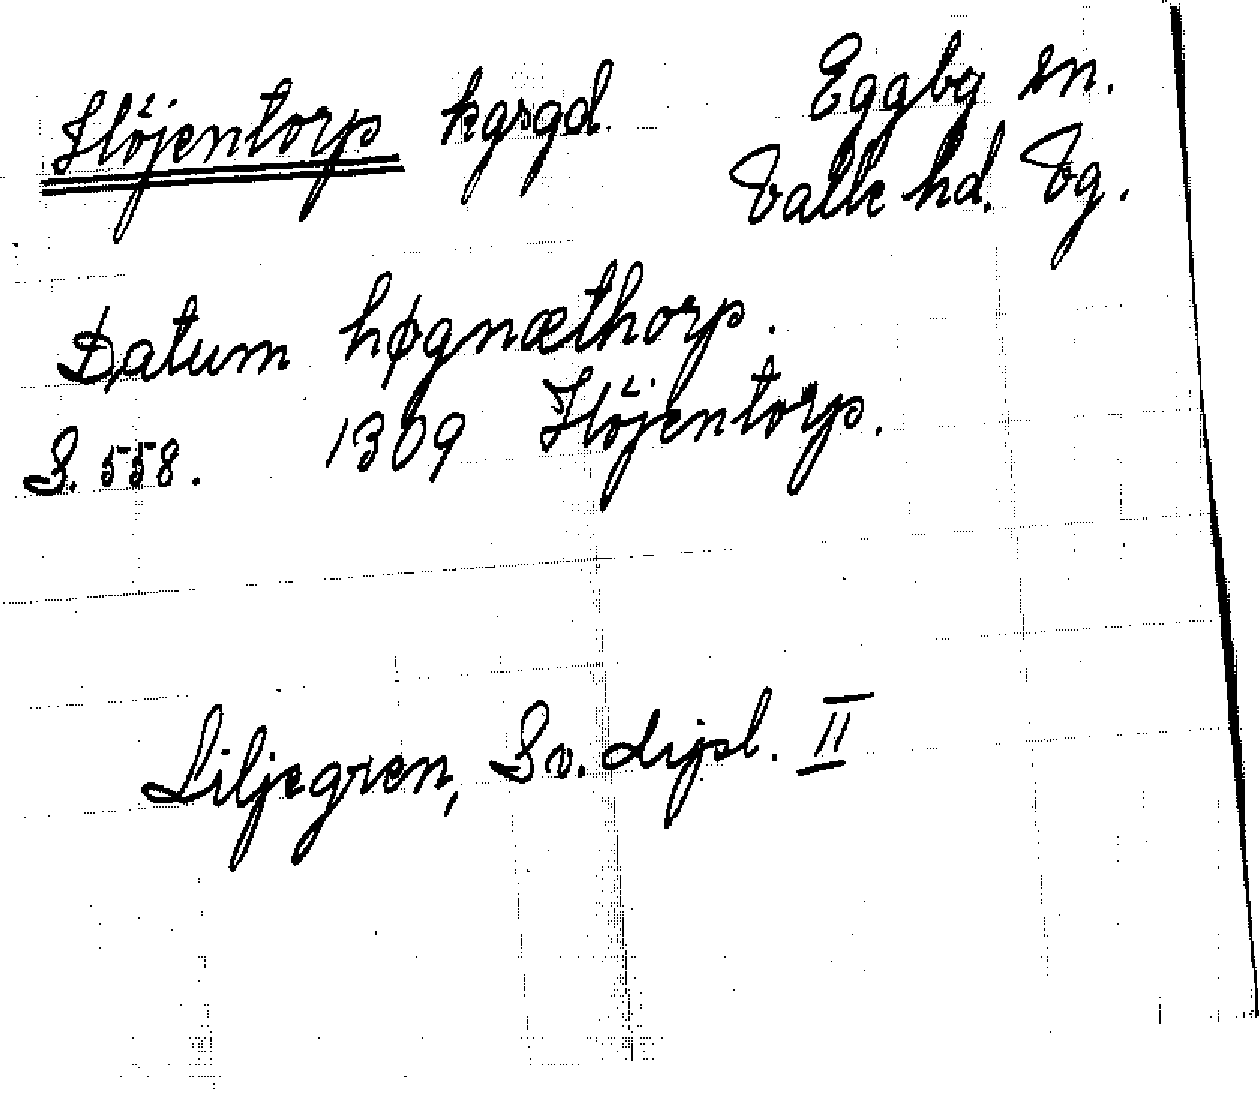 Höjentorp kgsgd. Eggby sn.
Valle hd. Vg.
Datum høgnæthorp.
S. 558. 1309 Höjentorp.
Liljegren, Sv. dipl. II